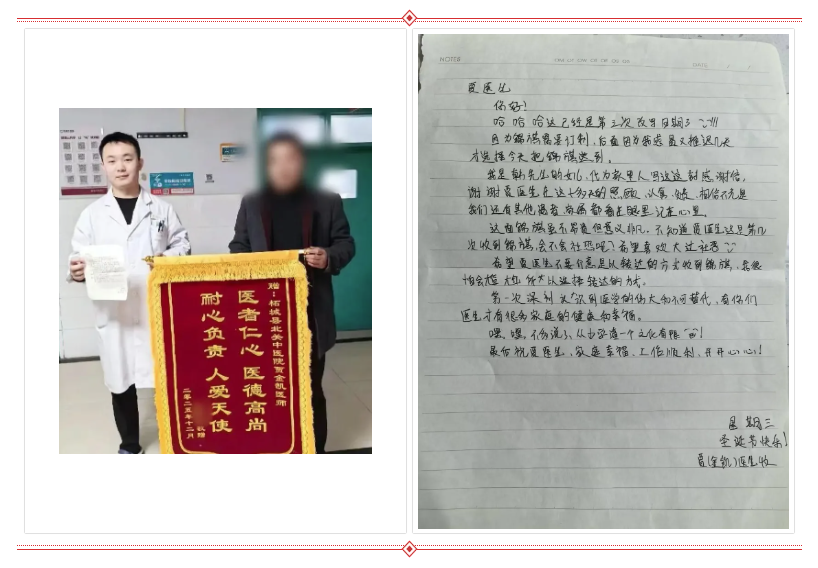 赠：柘城县北关中医院贾金凯医师
医者仁心 医德高尚
耐心负责 人爱天使
敬赠
二零二五年十二月
NOTES
DATE
贾医生
你好！
哈哈哈这已经是第三次改写日期了
因为锦旗需要订制，后面因为我感冒又推迟几天
才选择今天把锦旗送到。
我是韩先生的女儿，代为家里人写这封感谢信，
谢谢贾医生在这七多天的照顾，认真，负责，相信不光是
我们还有其他患者，家属都看在眼里记在心里。
这面锦旗虽不昂贵但意义非凡，不知道贾医生这是第几
次收到锦旗，会不会社恐呢？希望喜欢大过社恐
希望贾医生不要介意是以转送的方式收到锦旗，
所以选择转送的方式。
第一次深刻认识到医学的伟大和不可替代，有你们
医生才有很多家庭的健康和幸福。
嘿，嘿，不多说了，
最后祝贾医生，家庭幸福，工作顺利，开开心心！
星期三
圣诞节快乐！
贾(金凯)医生收